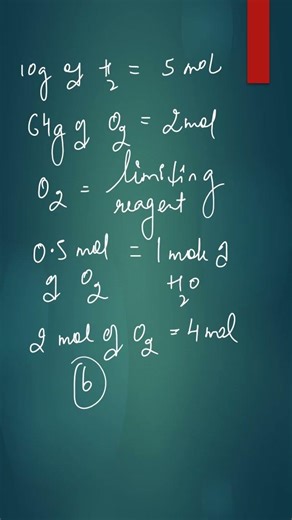 10g of H2 = 5 mol
64g of O2 = 2mol
O2 = limiting
reagent
0.5 mol = 1 mole of
of O2 H2O
2 mol of O2 = 4 mol
b